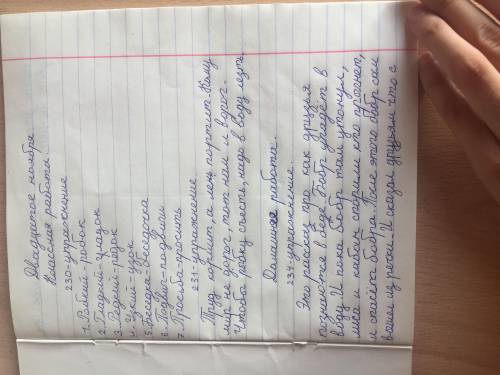 Двадцатое ноября
Классная работа
230-упражнение
1. Робкий-робок
2. Гладкий-гладок
3. Редкий-редок
4. Узкий-узок
5. Беседа-беседка
6. Подвиг-подвиги
7. Просьба-просить
231-упражнение
Труд кормит, а лень портит. Кому
мир не дорог, тот нам и ворог.
Чтобы рыбку съесть, надо в воду лезть.
Домашняя работа.
234-упражнение.
Это рассказ про как друзья
познаются в беде. Бобр упадёт в
воду. И пока бобр там утонул,
лиса и кабан спорили кто прыгнет,
и спасёт бобра. После этого бобр сам
вышел из речки. И сказал друзьям что с